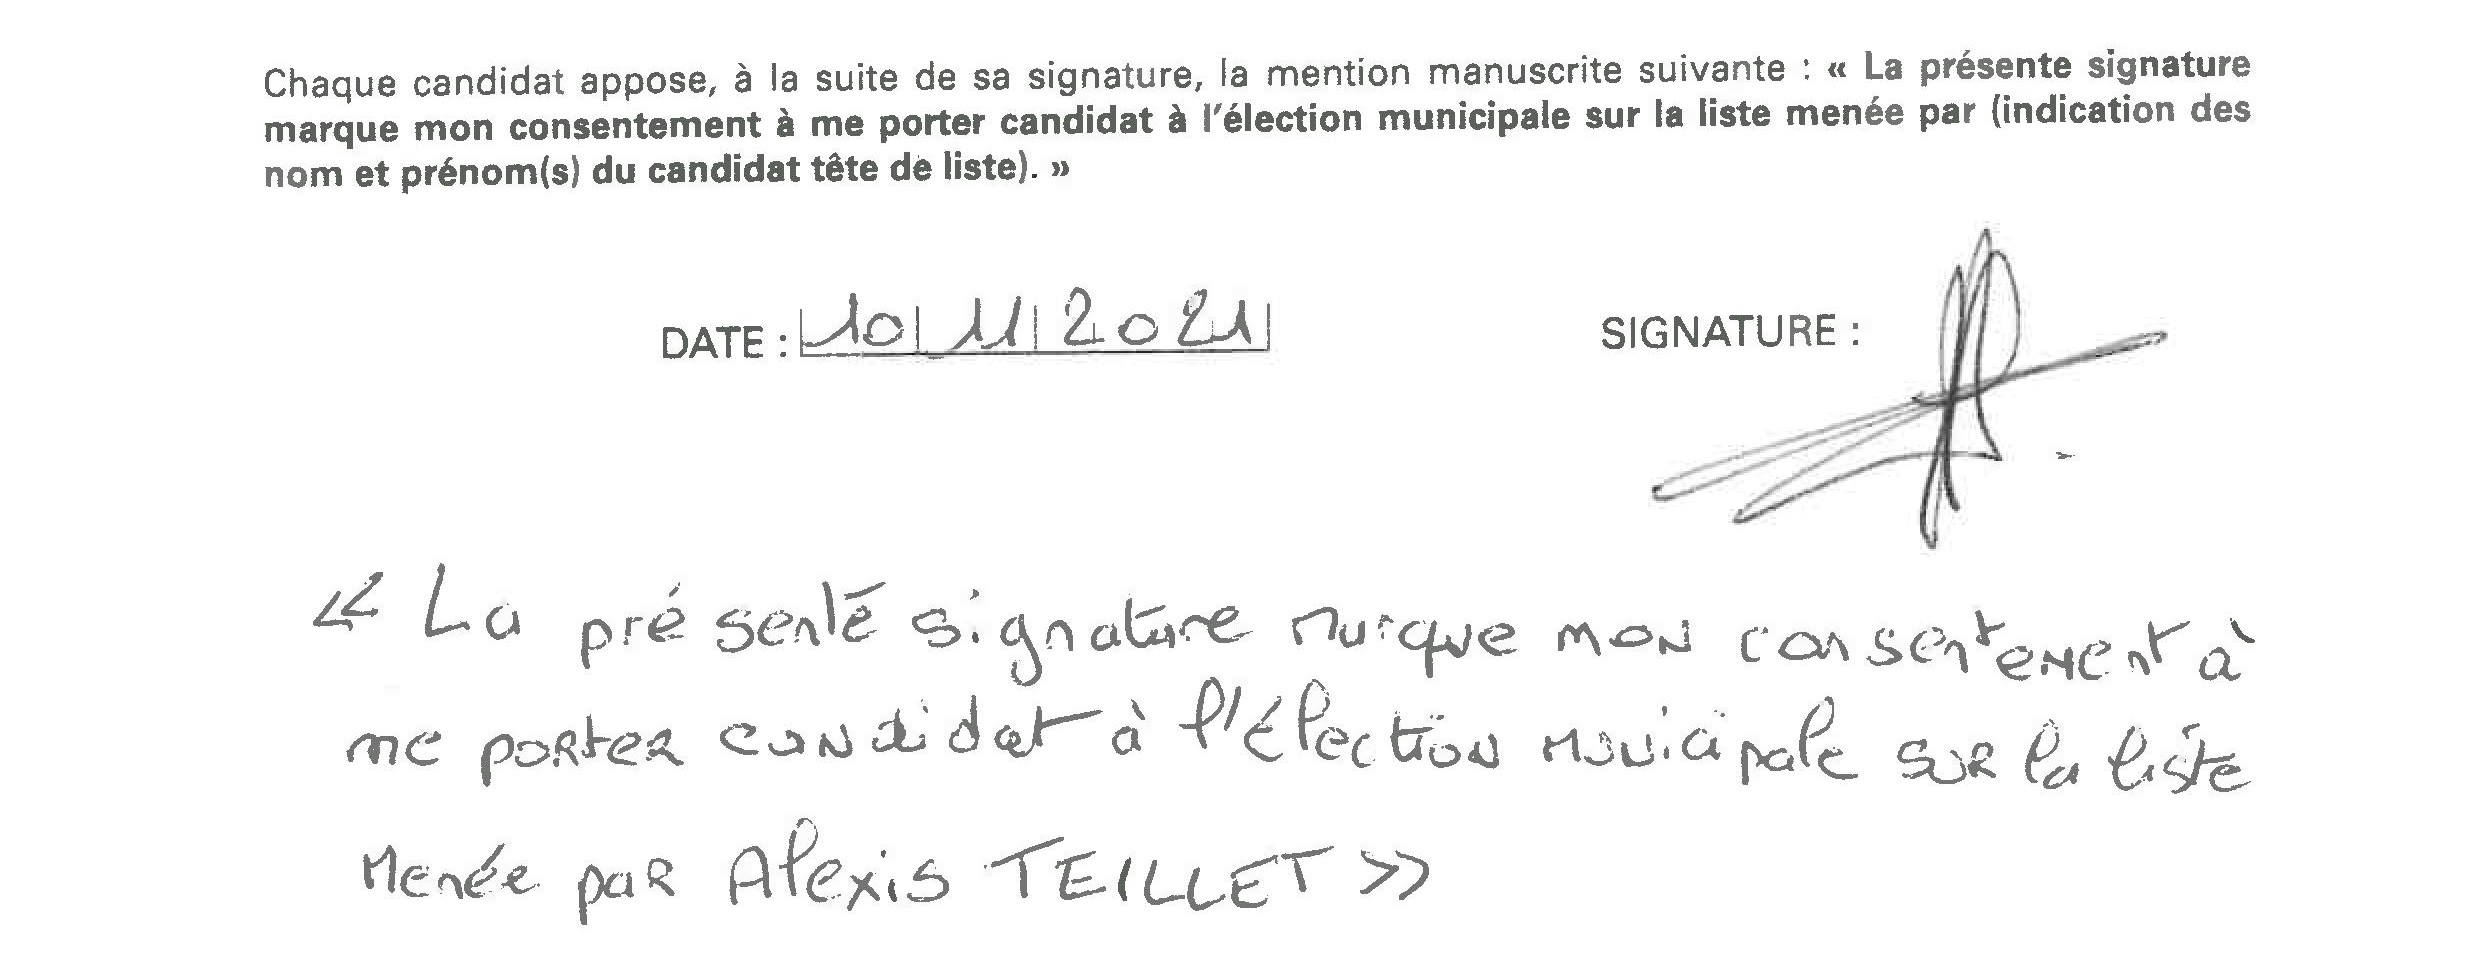 Chaque candidat appose, à la suite de sa signature, la mention manuscrite suivante : « La présente signature
marque mon consentement à me porter candidat à l'élection municipale sur la liste menée par (indication des
nom et prénom(s) du candidat tête de liste). »
DATE : 10 11 2021 SIGNATURE :
« La présente signature marque mon consentement à
me porter candidat à l'élection municipale sur la liste
menée par Alexis TEILLET »